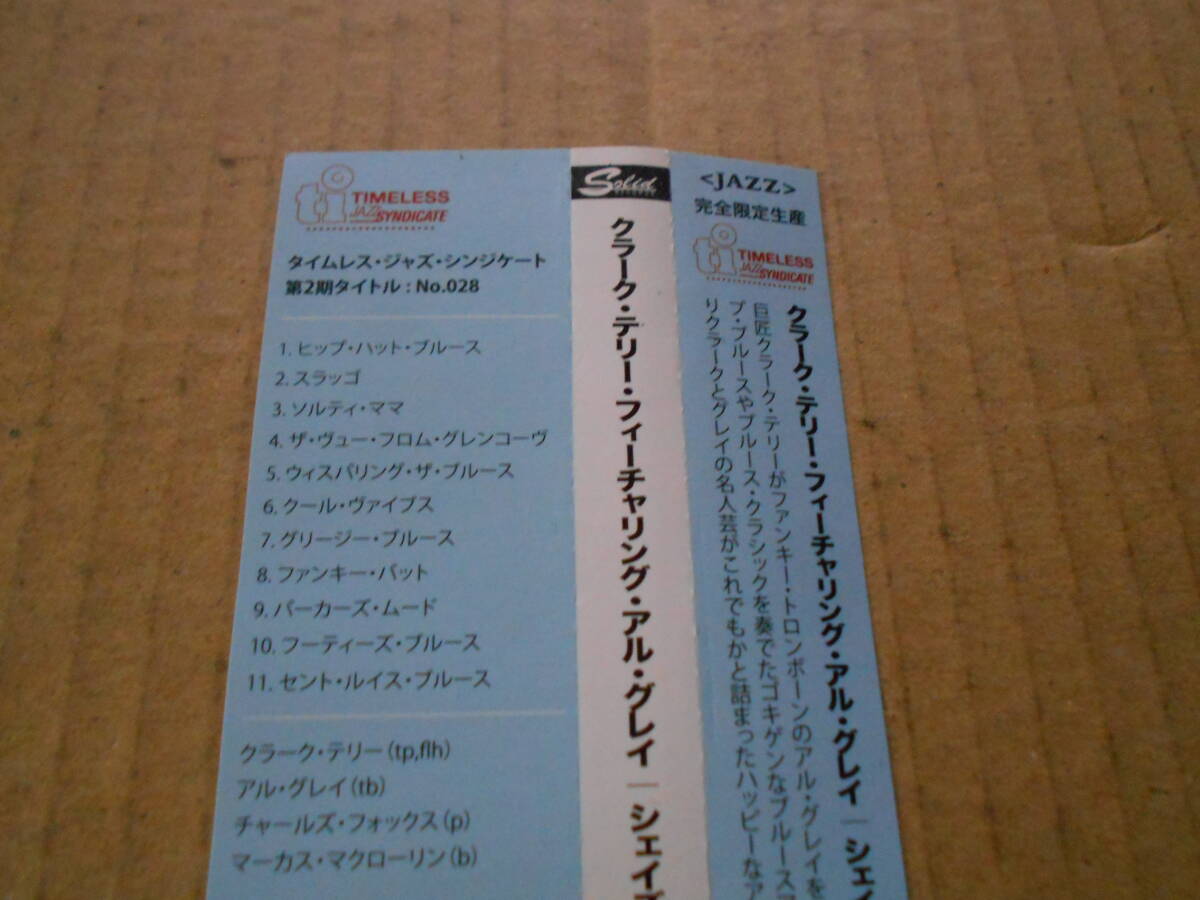 TIMELESS
JAZZ SYNDICATE
タイムレス・ジャズ・シンジケート
第2期タイトル：No.028
1. ヒップ・ハット・ブルース
2. スラッゴ
3. ソルティ・ママ
4. ザ・ヴュー・フロム・グレンコーヴ
5. ウィスパリング・ザ・ブルース
6. クール・ヴァイブス
7. グリージー・ブルース
8. ファンキー・バット
9. パーカーズ・ムード
10. フーティーズ・ブルース
11. セント・ルイス・ブルース
クラーク・テリー(tp,flh)
アル・グレイ(tb)
チャールズ・フォックス(p)
マーカス・マクローリン(b)
Solid
RECORDS
クラーク・テリー・フィーチャリング・アル・グレイ｜シェイズ
<JAZZ>
完全限定生産
TIMELESS
JAZZ SYNDICATE
クラーク・テリー・フィーチャリング・アル・グレイ｜シェイ
巨匠クラーク・テリーがファンキー・トロンボーンのアル・グレイを
プ・ブルースやブルース・クラシックを奏でたゴキゲンなブルース
りクラークとグレイの名人芸がこれでもかと詰まったハッピーなア